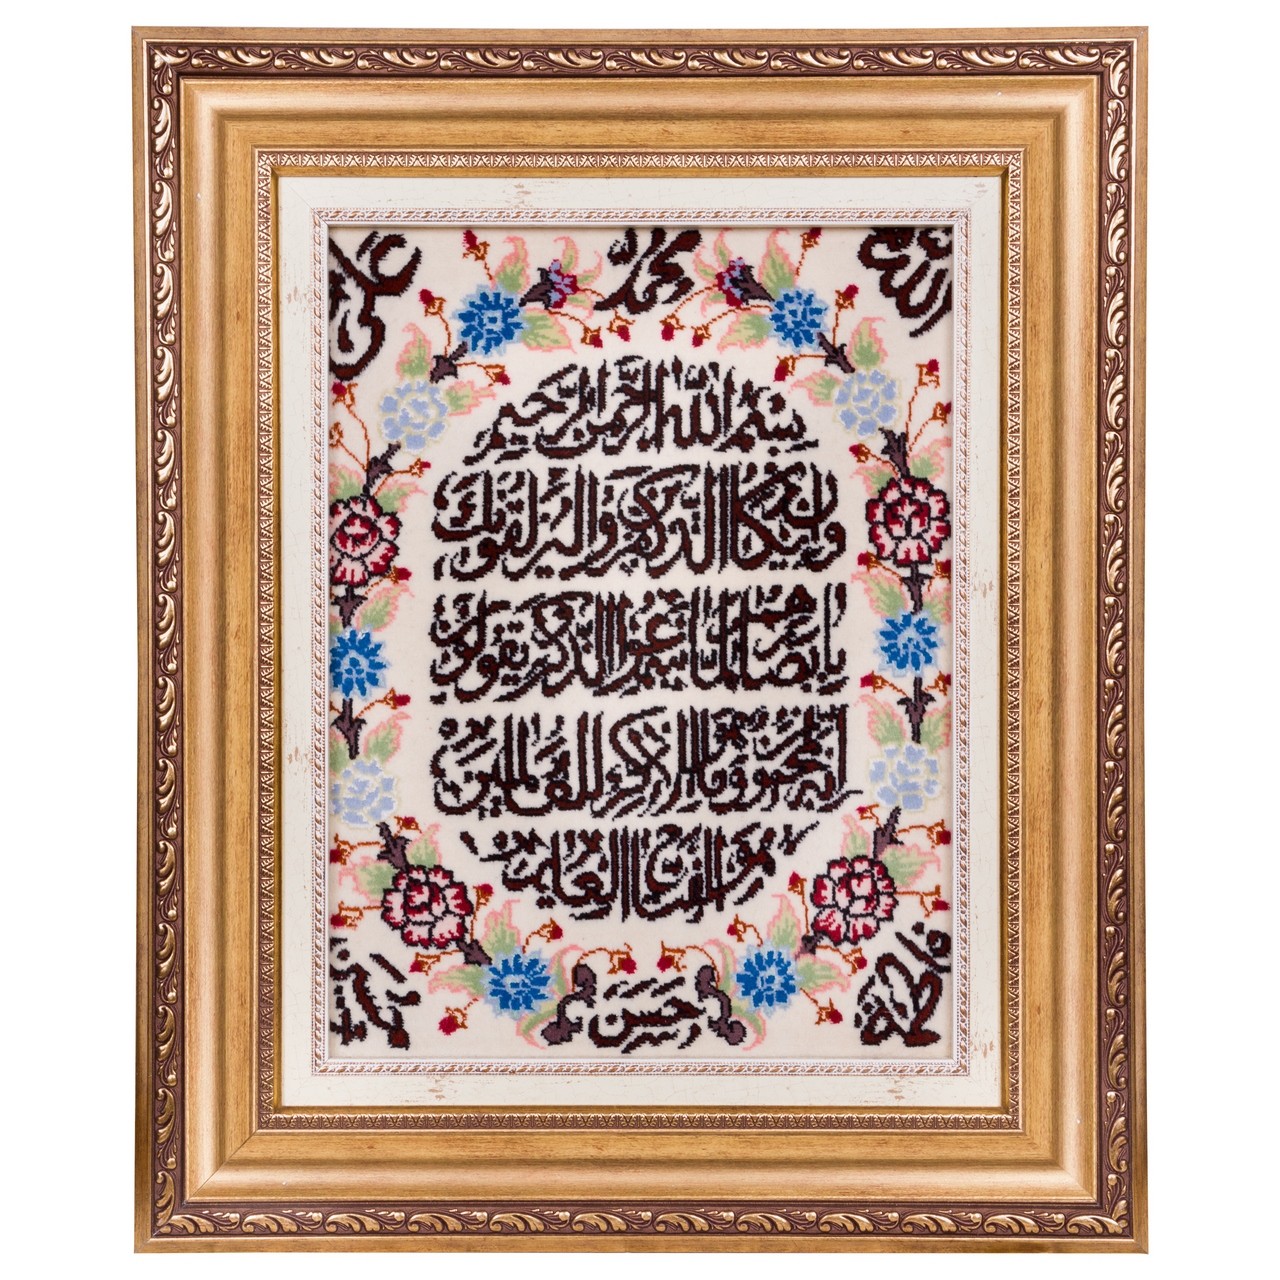 الله محمد علی
بسم الله الرحمن الرحیم
وان یکاد الذین کفروا لیزلقونک
بابصارهم لما سمعوا الذکر ویقولون
انه لمجنون وما هو الا ذکر للعالمین
وهو الفتاح العلیم
فاطمه حسن حسین